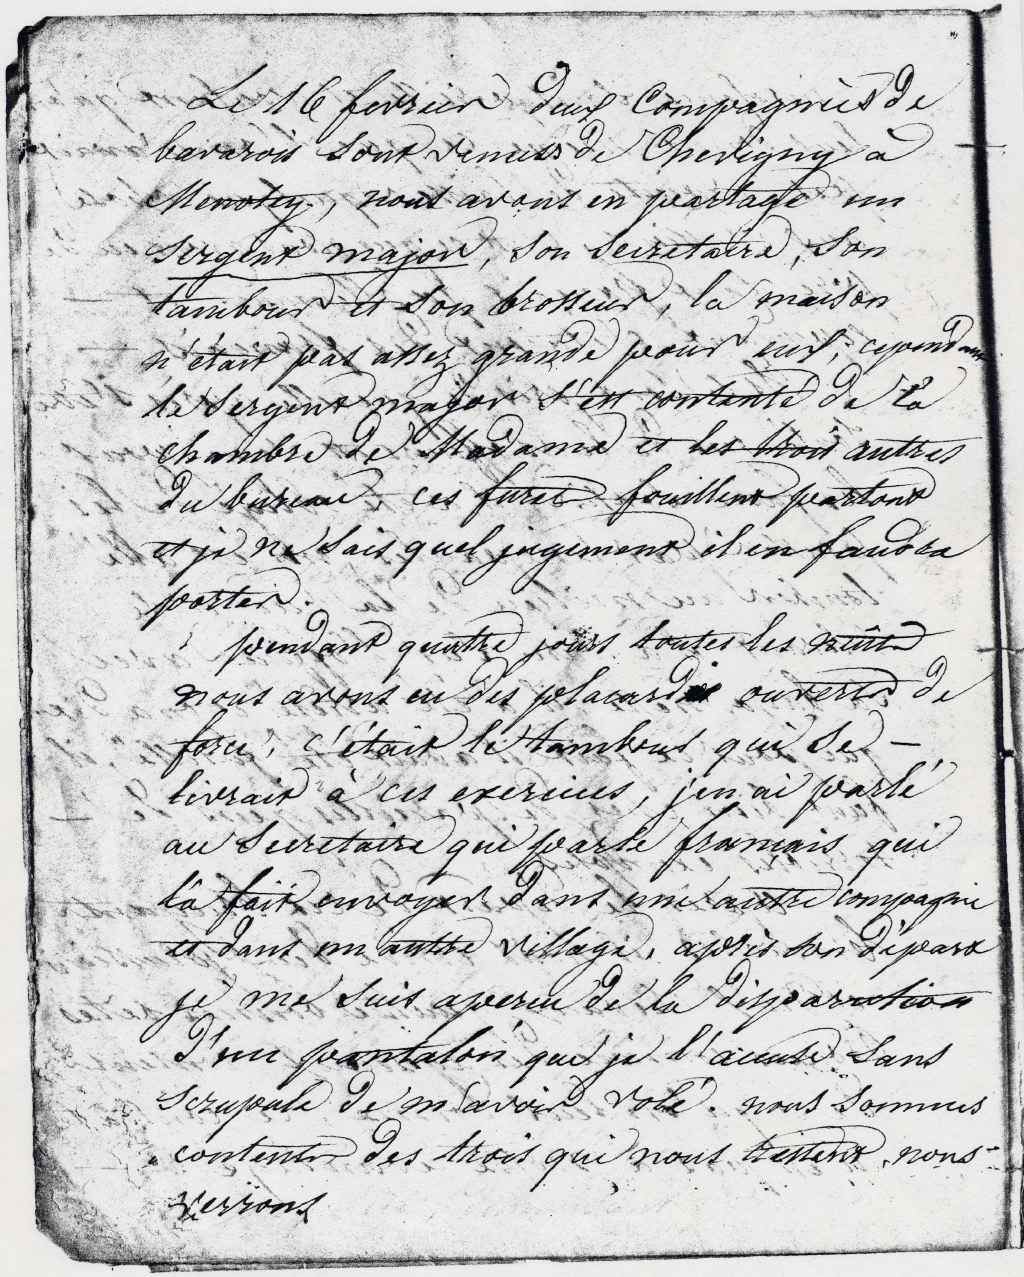 Le 16 fevrier deux Compagnies de
bavarois sont venus de Chevigny à
Menotey, nous avons en partage un
sergent major, son secretaire, son
tambour et son brosseur, la maison
n'était pas assez grande pour eux, cependant
le sergent major s'est contenté de la
chambre de Madame et les trois autres
du bureau, ces furet fouillent partout
et je ne sais quel jugement il en faudra
porter.
pendant quatre jours toutes les nuits
nous avons eu des placards ouverts de
force, c'était le tambour qui se -
livrait à ces exercices, j'en ai parlé
au secretaire qui parle français qui
l'à fait envoyer dans une autre compagnie
et dans un autre village, après son départ
je me suis apercu de la disparution
d'un pantalon que je l'accuse sans
scrupule de m'avoir volé. nous sommes
contents des trois qui nous restent, nous
verrons